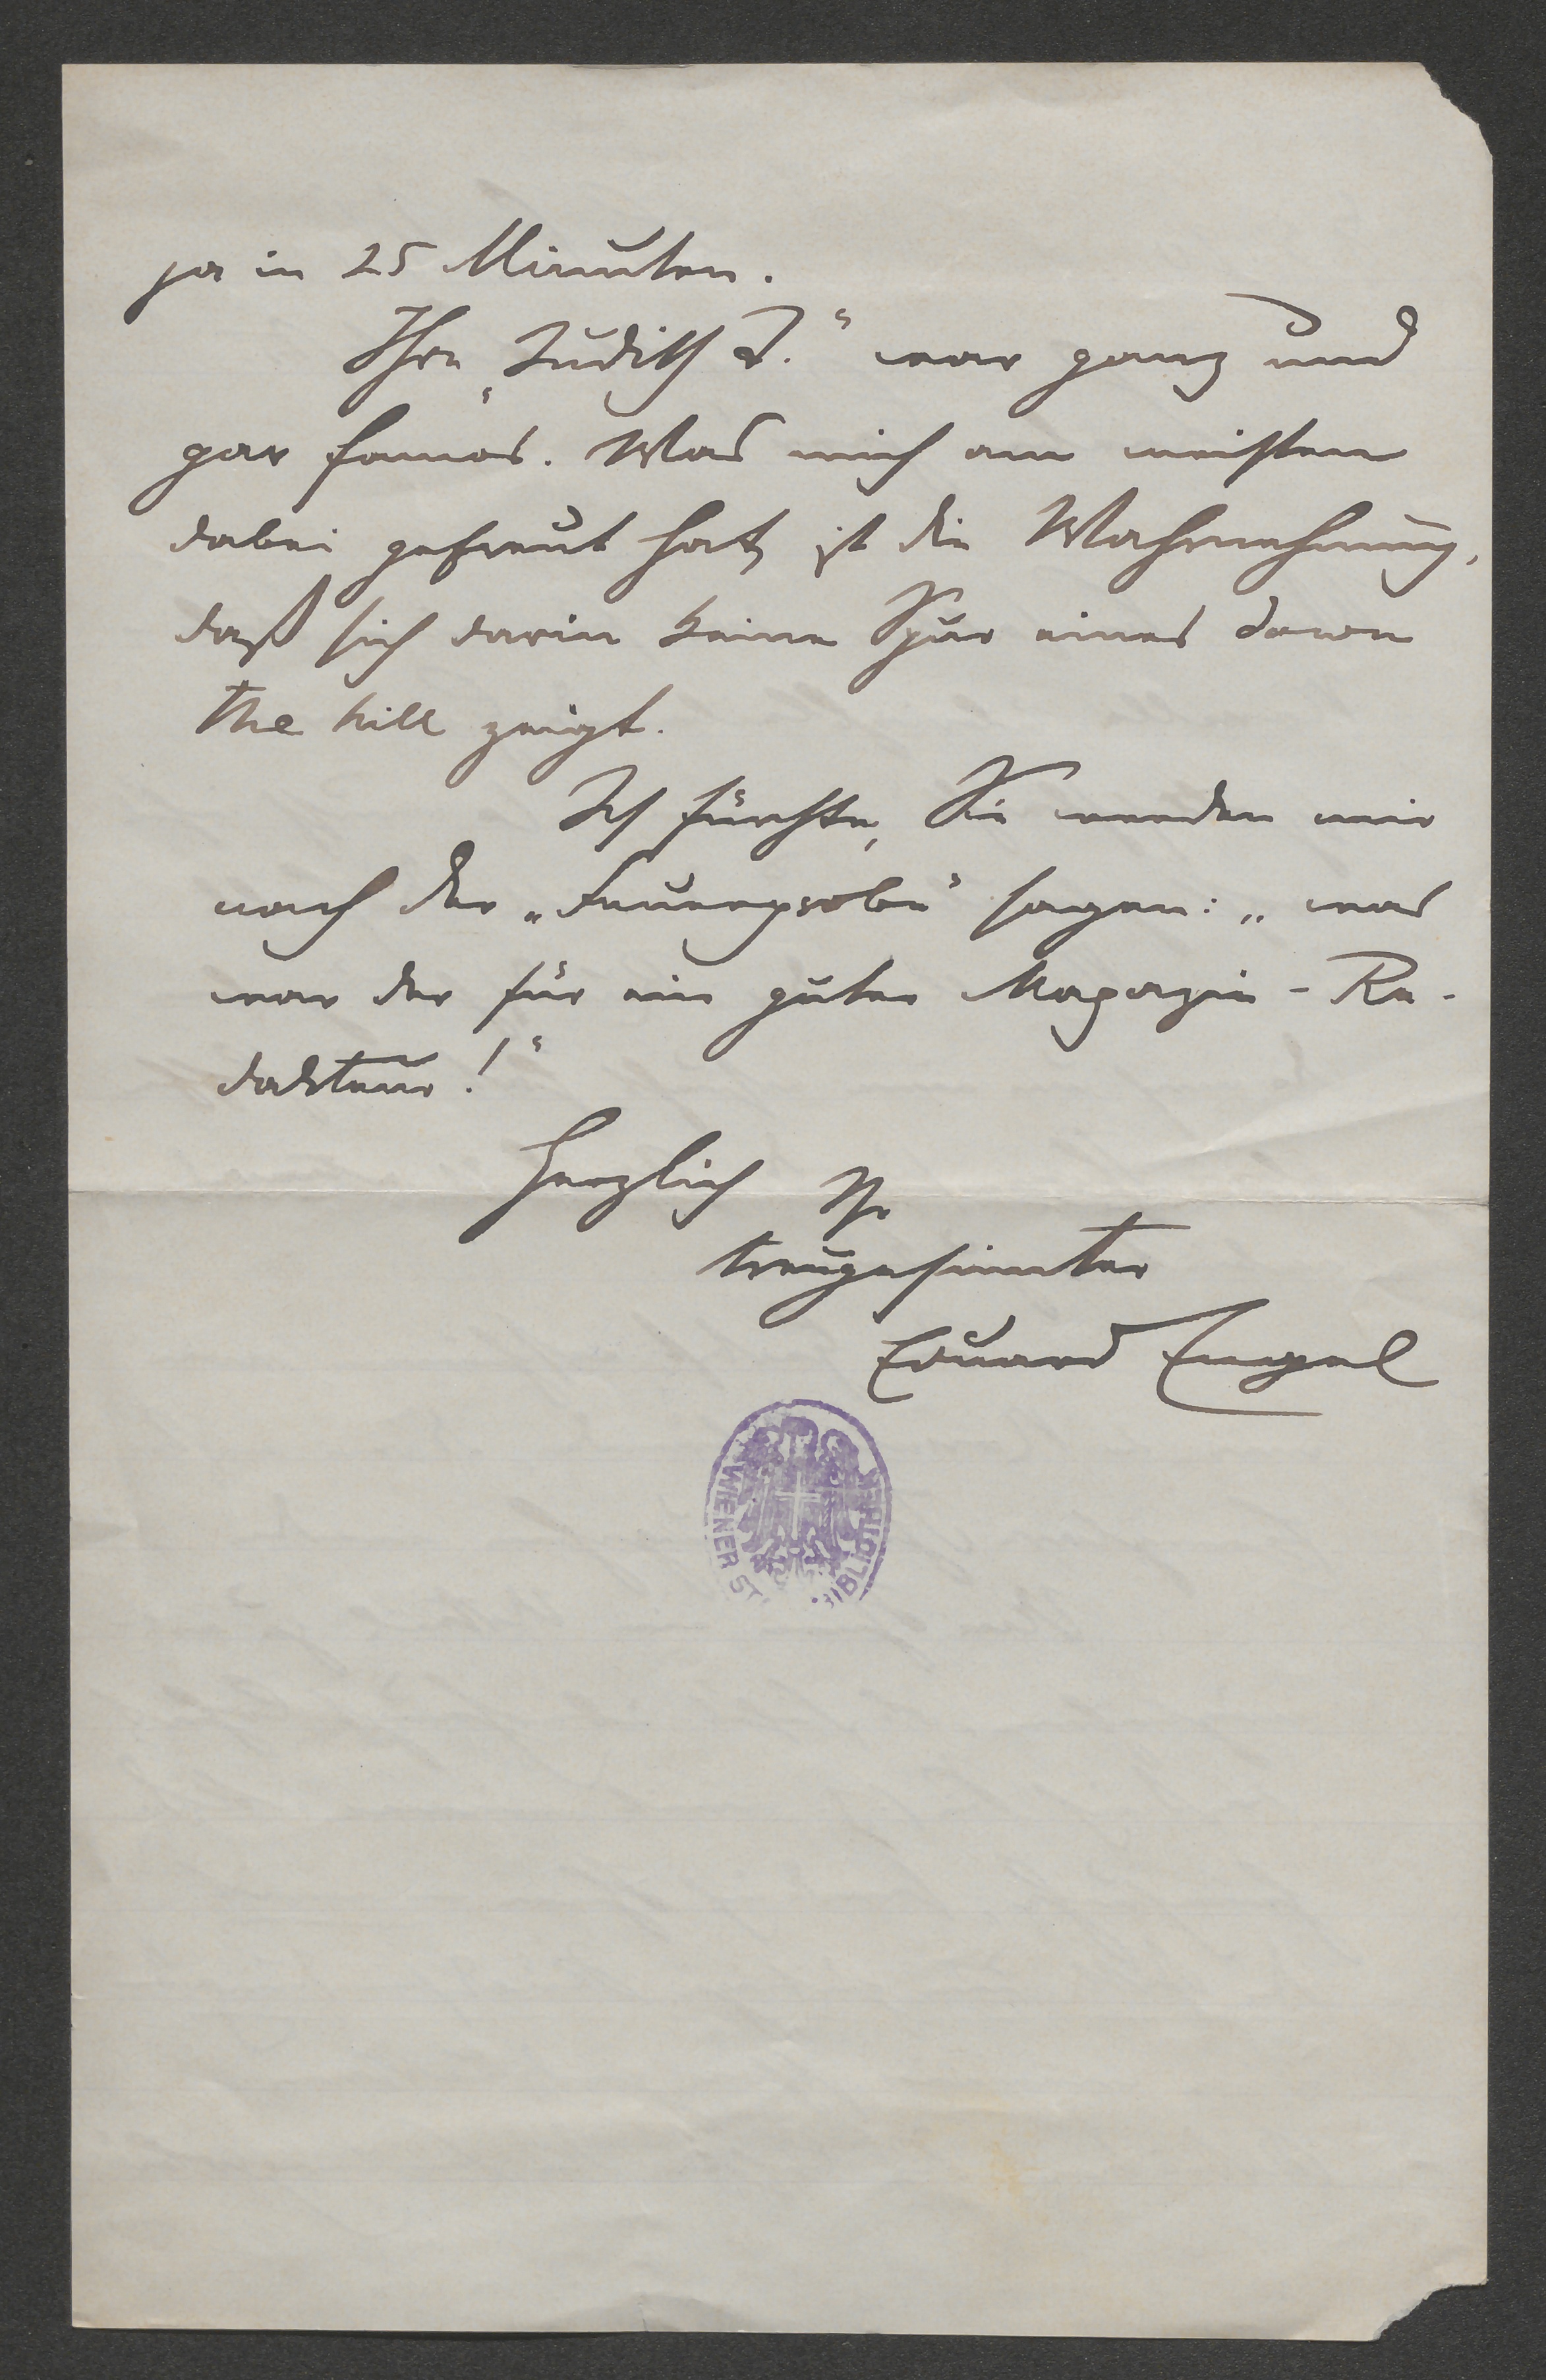 ja in 25 Minuten.
Ihre „Judith T.“ war ganz und
gar famos. Was mich am meisten
dabei gefreut hat, ist die Wahrnehmung,
daß sich darin keine Spur eines down
the hill zeigt.
Ich fürchte, Sie werden mir
nach der „Feuerprobe“ sagen: „was
war der für ein guter Magazin-Re-
dakteur!“
Herzlich Ihr
treugesinnter
Eduard Engel
WIENER ST BIBLIOTHEK